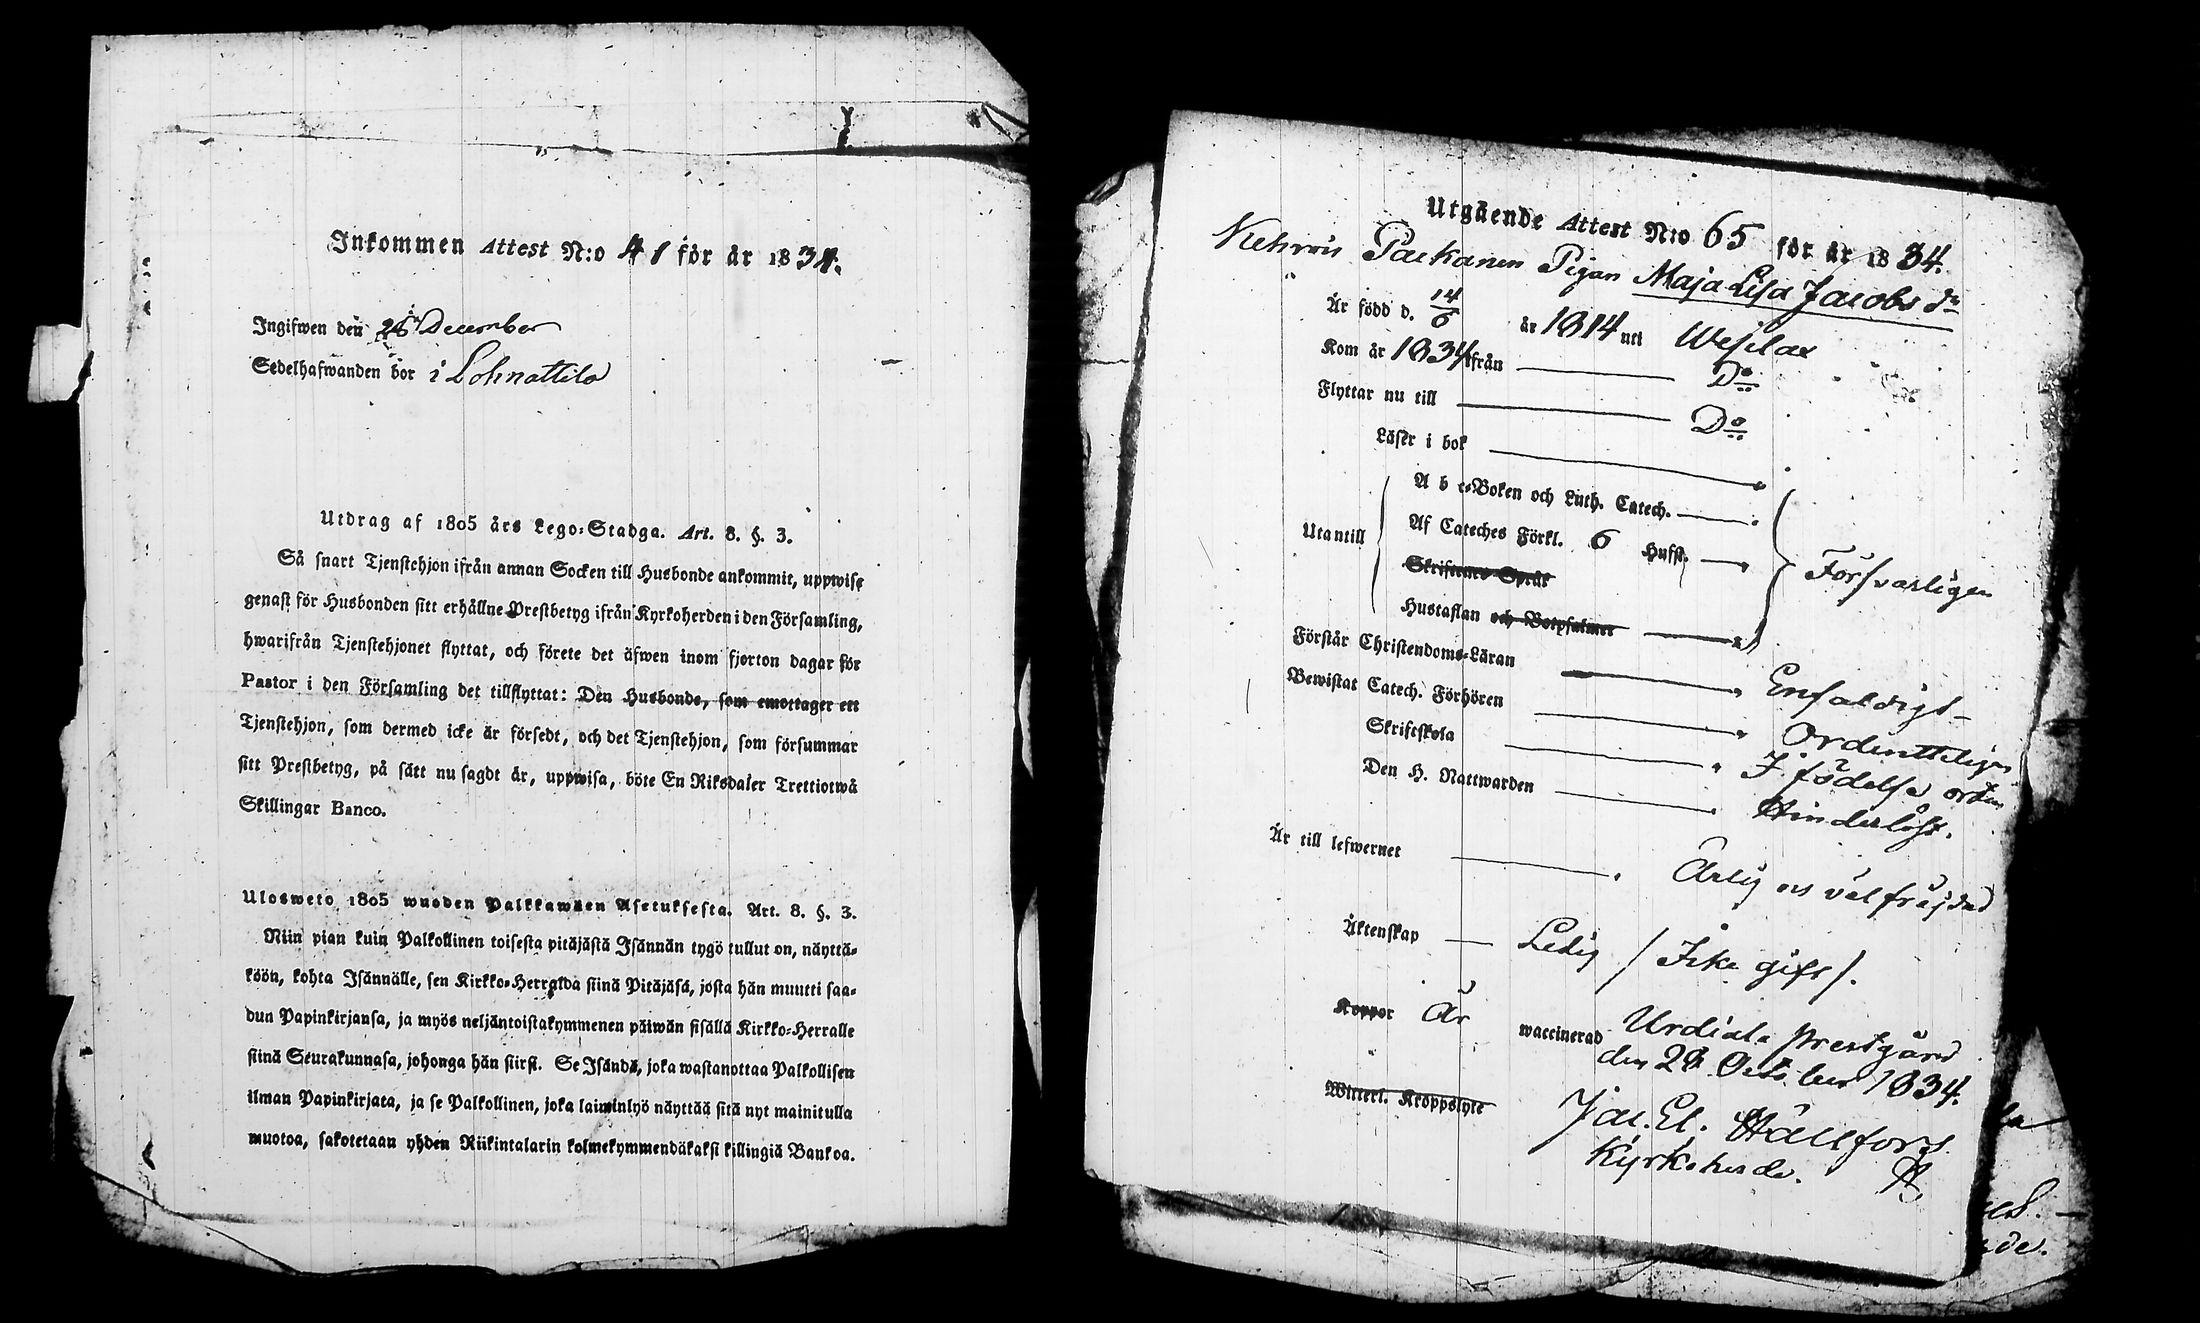 Inkommen Attest N:o 41 för år 1834.
Ingifwen den December
Sedelhafwanden bor i Lohnattila
Utdrag af 1805 års Lego-Stadga. Art. 8. §. 3.
Så snart Tjenstehjon ifrån annan Socken till Husbonde ankommit, uppwise
genast för Husbonden sitt erhållne Prestbetyg ifrån Kyrkoherden i den Församling,
hwarifrån Tjenstehjonet flyttat, och förete det äfwen inom fjorton dagar för
Pastor i den Församling det tillflyttat: Den Husbonde, som emottager ett
Tjenstehjon, som dermed icke är försedt, och det Tjenstehjon, som försummar
sitt Prestbetyg, på sätt nu sagdt är, uppwisa, böte En Riksdaler Trettiotwå
Skillingar Banco.
Ulosweto 1805 wuoden Palkkawäen Asetuksesta. Art. 8. §. 3.
Niin pian kuin Palkollinen toisesta pitäjästä Isännän tygö tullut on, näyttä-
köön, kohta Isännälle, sen Kirkko-Herralda siinä Pitäjäsä, josta hän muutti saa-
dun Papinkirjansa, ja myös neljäntoistakymmenen päiwän sisällä Kirkko-Herralle
siinä Seurakunnasa, johonga hän siirsi. Se Isändä, joka wastanottaa Palkollisen
ilman Papinkirjata, ja se Palkollinen, joka laiminlyö näyttää sitä nyt mainitulla
muotoa, sakotetaan yhden Riikintalarin kolmekymmendäkaksi killingiä Bankoa.
Utgående Attest N:o 65 för år 1834.
Kehrois Paekanen Pigan Maja Lisa Jacobs dr
Är född d. 14/6 år 1814 uti Wesilax
Kom år 1834 ifrån Do
Flyttar nu till Do
Läser i bok
Utantill
A b c-Boken och Luth. Catech.
Af Cateches Förkl. 6 Hufst.
Skriftenes Språk
Hustaflan och Botpsalmer
Försvarligen
Förstår Christendoms-Läran Enfaldigt
Bewistat Catech. Förhören Ordentteligen
Skriftskola I födelse orten
Den H. Nattwarden Hinderlöst.
Är till lefwernet Ärlig och välfräjdad
Äktenskap Ledig / Icke gift /.
Koppor Är waccinerad Urdiala Prestgård
den 28 October 1834.
Witterl. Kroppslyte Jac. El. Hällfors
Kyrkoherde.